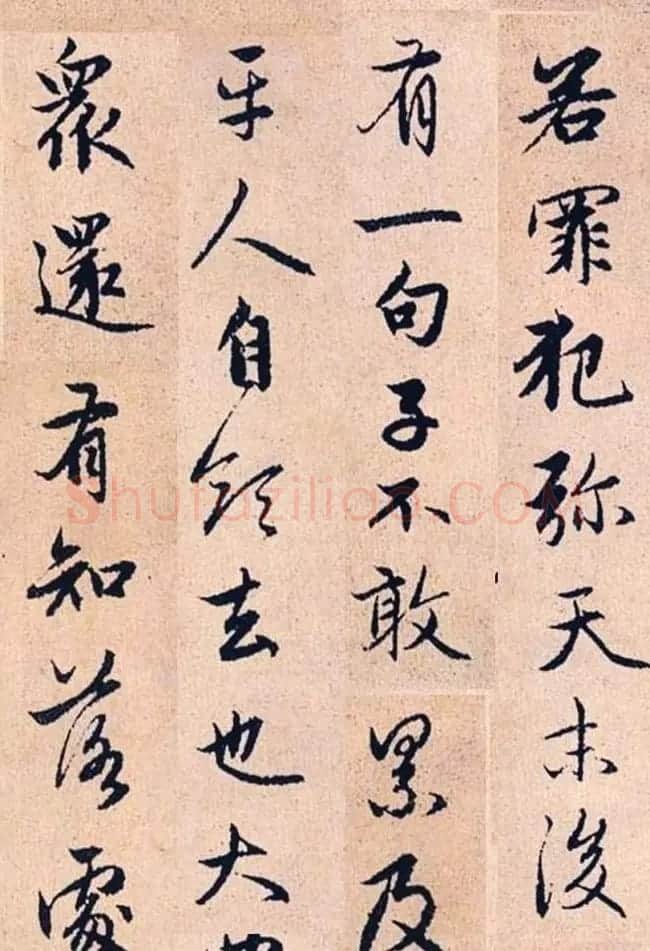 若罪犯弥天末後
有一句子不敢累及
平人自領去也大
衆還有知落處
Shufaziliao.COM